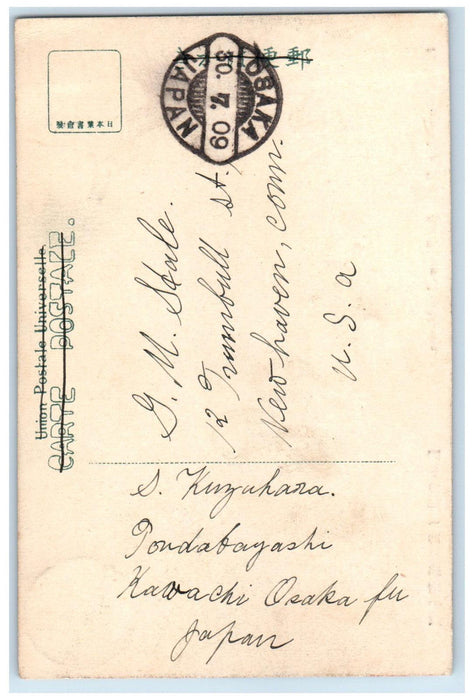 OSAKA
30. 7. 09
JAPAN
日本葉書會發
Union Postale Universelle.
CARTE POSTALE.
12 Trumbull st.
New haven, Conn.
U. S. a
S. Kuzuhara.
Tondabayashi
Kawachi Osaka fu
Japan